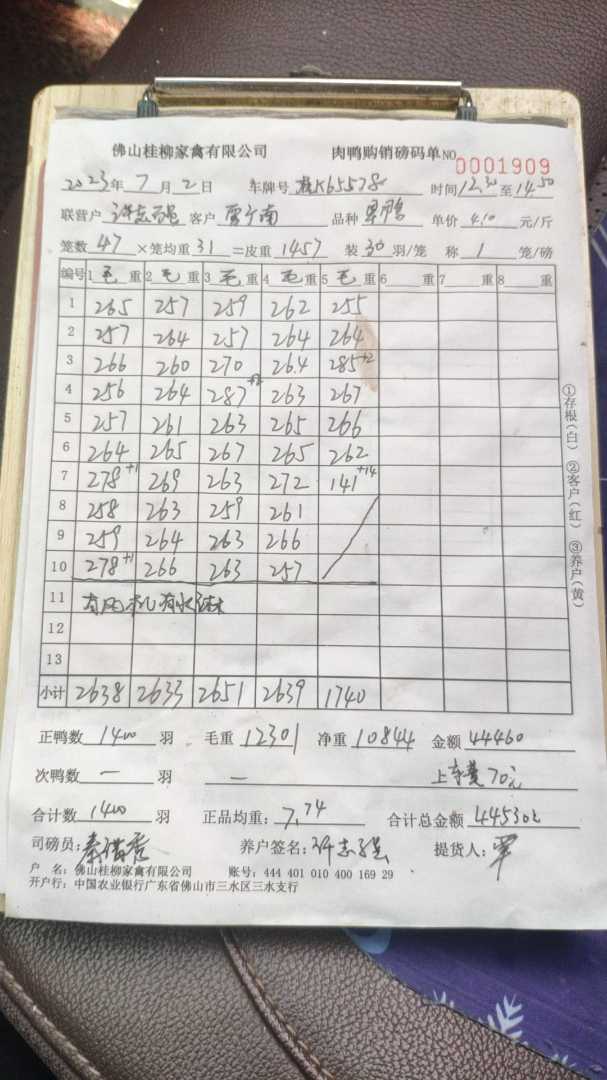 佛山桂柳家禽有限公司 肉鸭购销磅码单 NO 0001909
2023年 7 月 2 日 车牌号 K65578 时间 12.30 至 14.50
联营户 许志强 客户 品种 单价 4.10 元/斤
笼数 47 ×笼均重 31 =皮重 1457 装 30 羽/笼 称 1 笼/磅
编号 1 毛 重 2 毛 重 3 毛 重 4 毛 重 5 毛 重 6 重 7 重 8 重
1 265 257 259 262 255
2 257 264 257 264 264
3 266 260 270 264 285+2
4 256 264 287 263 267
5 257 261 263 265 266
6 264 265 267 265 262
7 278+1 269 263 272 141+14
8 258 263 259 261
9 259 264 263 266
10 278+1 266 263 257
11 有风机有水
12
13
小计 2638 2633 2651 2639 1740
正鸭数 1400 羽 毛重 12301 净重 10844 金额 44460
次鸭数 一 羽 一 上车费 70元
合计数 1400 羽 正品均重: 7.74 合计总金额 44530元
司磅员: 养户签名: 许志强 提货人: 覃
户 名: 佛山桂柳家禽有限公司 账号: 444 401 010 400 169 29
开户行: 中国农业银行广东省佛山市三水区三水支行
①存根(白) ②客户(红) ③养户(黄)